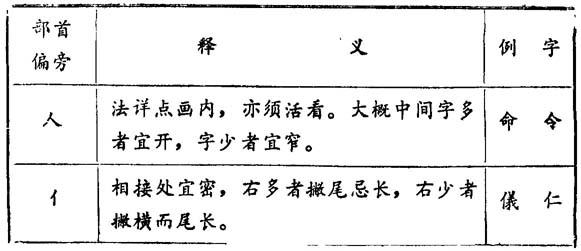 部首
偏旁
释 义
例 字
人
法详点画内，亦须活看。大概中间字多
者宜开，字少者宜窄。
命 令
亻
相接处宜密，右多者撇尾忌长，右少者
撇横而尾长。
儀 仁